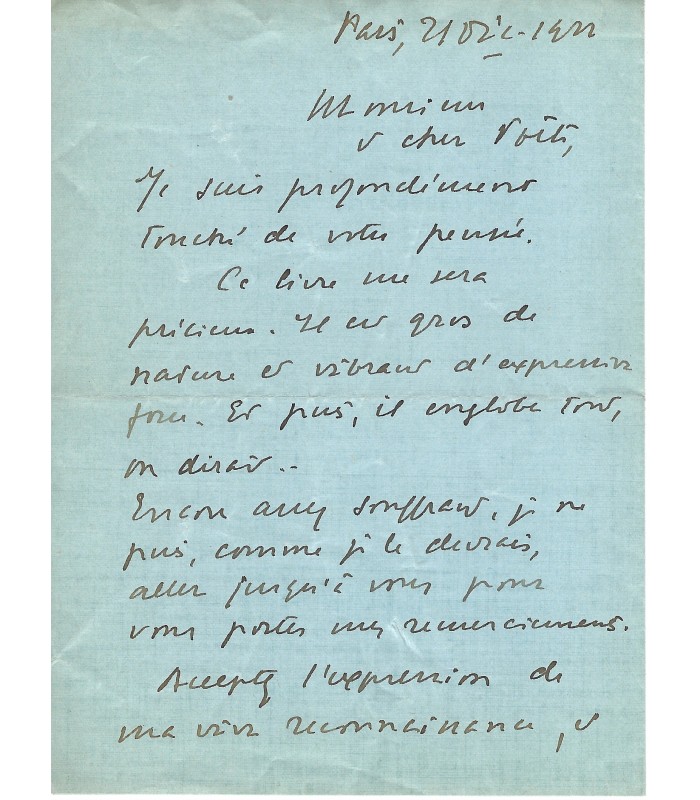 Paris, 21 Déc. 1922
Monsieur
& cher Poète,
Je suis profondément
touché de votre pensée.
Ce livre me sera
précieux. Il est gros de
nature et vibrant d'expressive
force. Et puis, il englobe tout,
on dirait..
Encore assez souffrant, je ne
puis, comme je le devrais,
aller jusqu'à vous pour
vous porter mes remerciements.
Acceptez l'expression de
ma vive reconnaissance, &